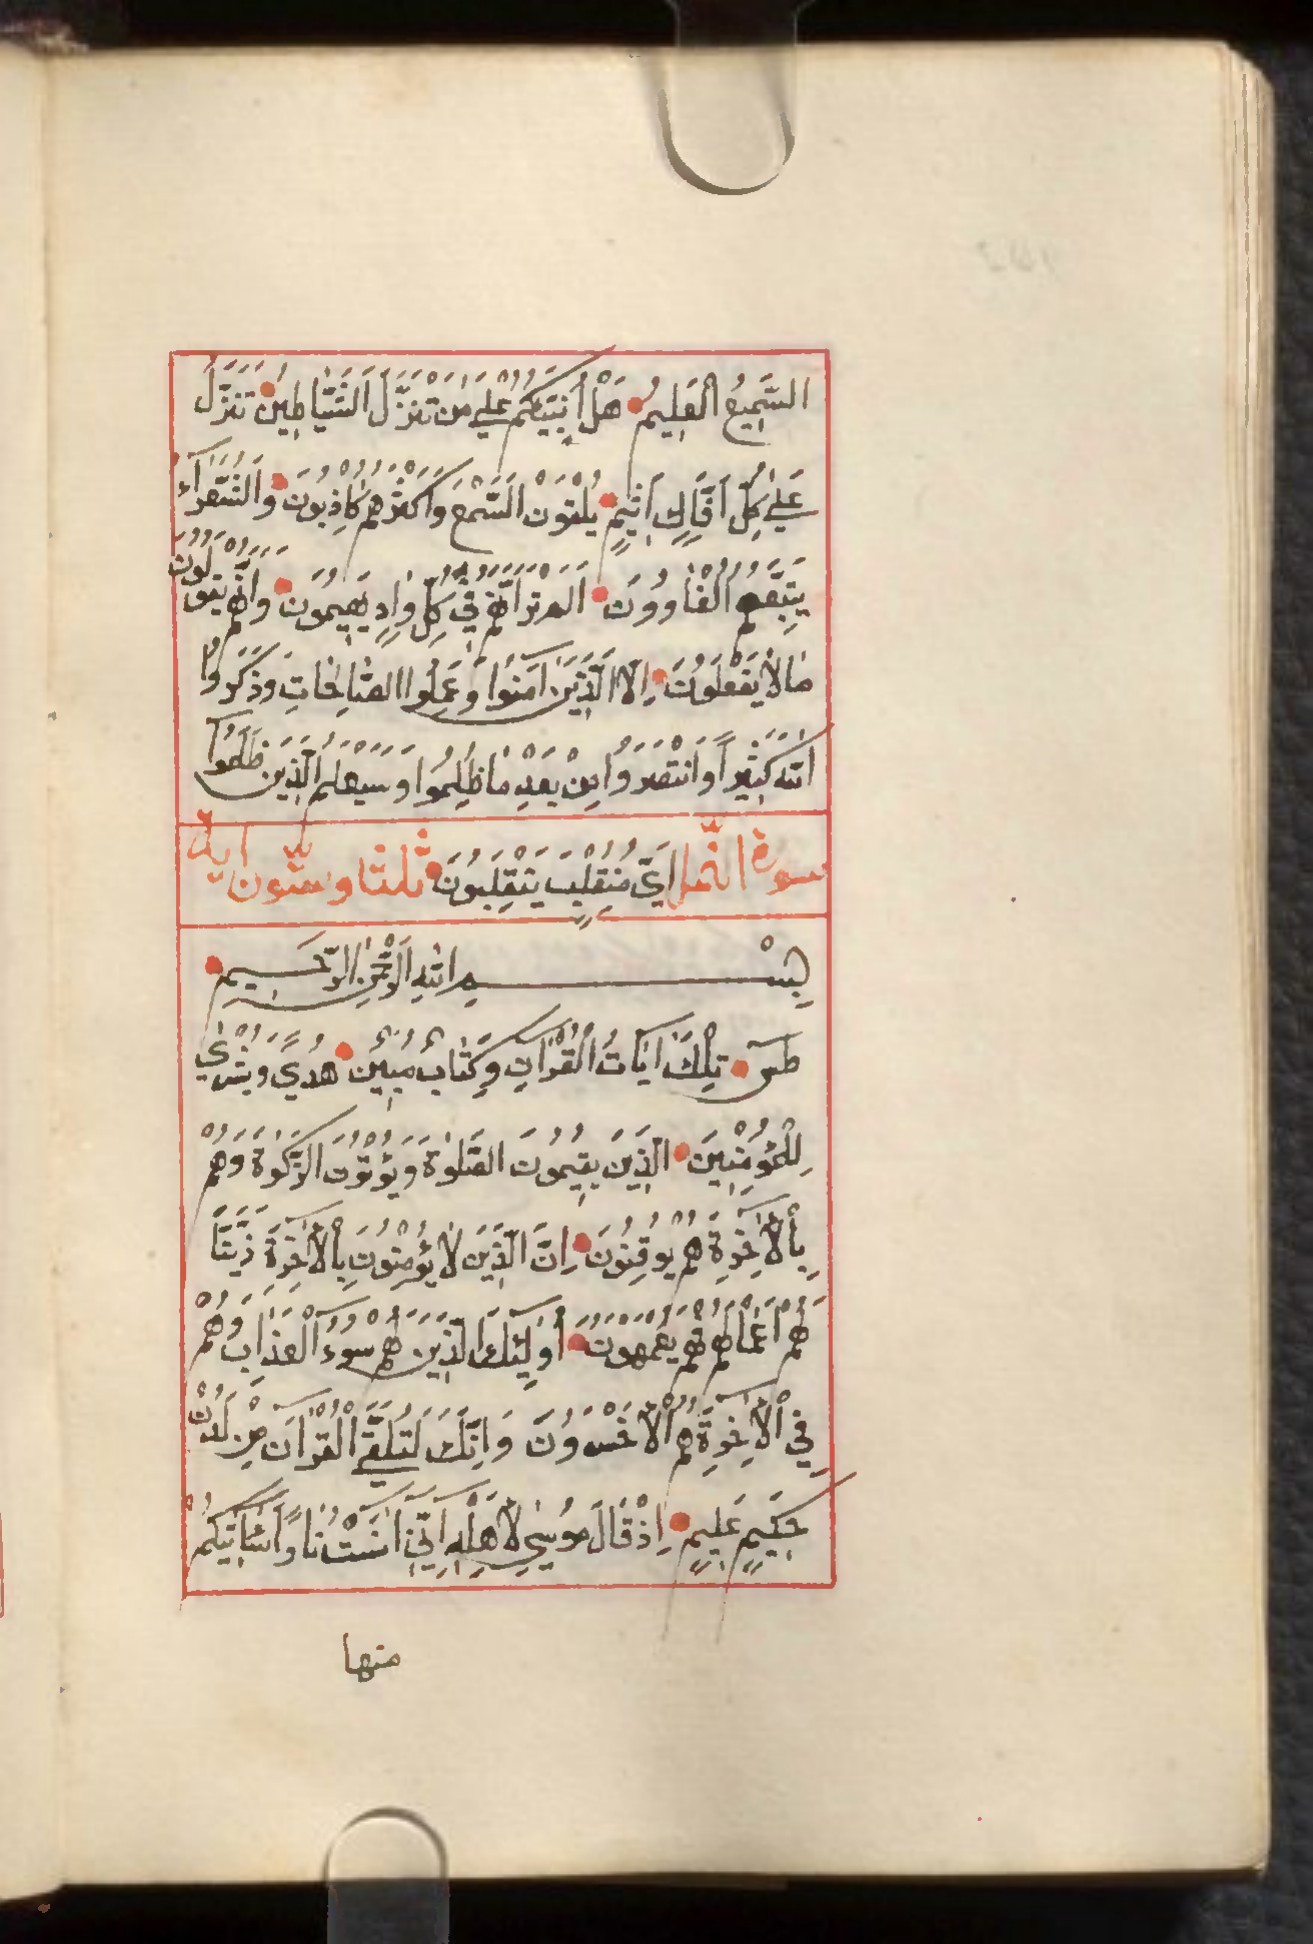 السَّمِيعُ الْعَلِيمُ هَلْ أُنَبِّئُكُمْ عَلٰي مَنْ تَنَزَّلُ الشَّيَاطِينُ تَنَزَّلُ
عَلٰي كُلِّ اَفَّاكٍ اَثِيمٍ يُلْقُونَ السَّمْعَ وَاَكْثَرُهُمْ كَاذِبُونَ وَالشُّعَرَآءُ
يَتَّبِعُهُمُ الْغَاوُونَ اَلَمْ تَرَ اَنَّهُمْ فِي كُلِّ وَادٍ يَهِيمُونَ وَاَنَّهُمْ يَقُولُونَ
مَا لَا يَفْعَلُونَ اِلَّا الَّذِينَ اٰمَنُوا وَعَمِلُوا الصَّالِحَاتِ وَذَكَرُوا
اللّٰهَ كَثِيرًا وَانْتَصَرُوا مِنْ بَعْدِ مَا ظُلِمُوا وَسَيَعْلَمُ الَّذِينَ ظَلَمُوا
سورة النمل اَيَّ مُنْقَلَبٍ يَنْقَلِبُونَ ثلثا وستون اية
بِسْمِ اللّٰهِ الرَّحْمٰنِ الرَّحِيمِ
طٰسٓ تِلْكَ اٰيَاتُ الْقُرْاٰنِ وَكِتَابٌ مُبِينٌ هُدًي وَبُشْرٰي
لِلْمُؤْمِنِينَ الَّذِينَ يُقِيمُونَ الصَّلٰوةَ وَيُؤْتُونَ الزَّكٰوةَ وَهُمْ
بِالْاٰخِرَةِ هُمْ يُوقِنُونَ اِنَّ الَّذِينَ لَا يُؤْمِنُونَ بِالْاٰخِرَةِ زَيَّنَّا
لَهُمْ اَعْمَالَهُمْ فَهُمْ يَعْمَهُونَ اُولٰئِكَ الَّذِينَ لَهُمْ سُوءُ الْعَذَابِ وَهُمْ
فِي الْاٰخِرَةِ هُمُ الْاَخْسَرُونَ وَاِنَّكَ لَتُلَقَّي الْقُرْاٰنَ مِنْ لَدُنْ
حَكِيمٍ عَلِيمٍ اِذْ قَالَ مُوسٰي لِاَهْلِهِ اِنِّي اٰنَسْتُ نَارًا سَاٰتِيكُمْ
منها